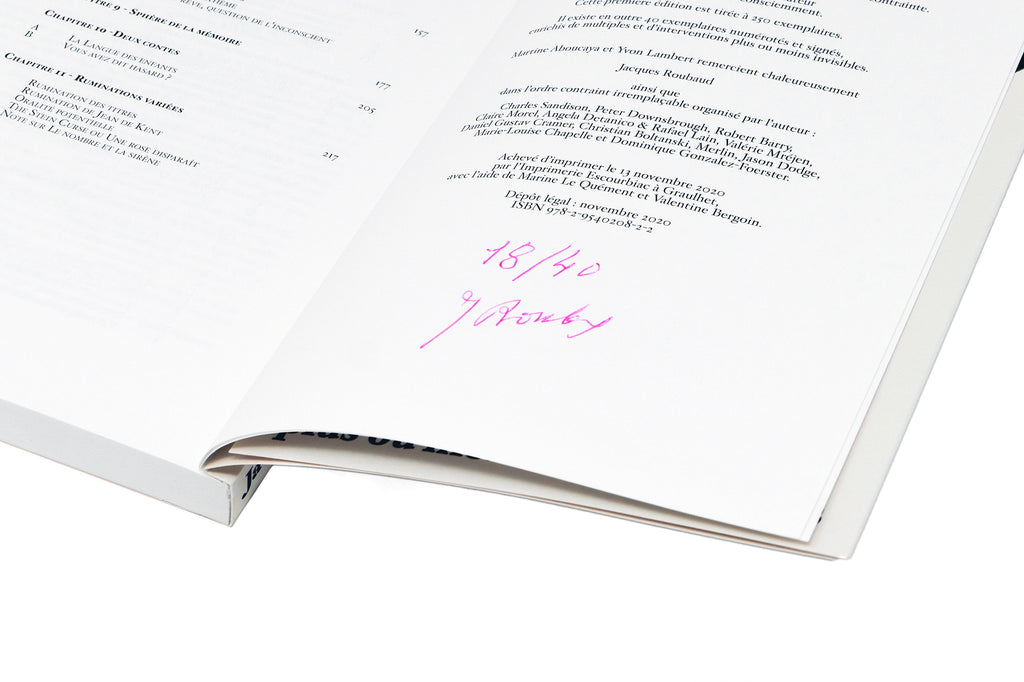 THÈME
RÊVE, QUESTION DE L'INCONSCIENT
CHAPITRE 9 - SPHÈRE DE LA MÉMOIRE 157
CHAPITRE 10 - DEUX CONTES
A LA LANGUE DES ENFANTS
B VOUS AVEZ DIT HASARD ? 177
CHAPITRE 11 - RUMINATIONS VARIÉES 205
RUMINATION DES TITRES
RUMINATION DE JEAN DE KENT
ORALITÉ POTENTIELLE
THE STEIN CURSE OU UNE ROSE DISPARAÎT
NOTE SUR LE NOMBRE ET LA SIRÈNE 217
contrainte.
Cette première édition est tirée à 250 exemplaires.
Il existe en outre 40 exemplaires numérotés et signés,
enrichis de multiples et d'interventions plus ou moins invisibles.
Martine Aboucaya et Yvon Lambert remercient chaleureusement
Jacques Roubaud
ainsi que
dans l'ordre contraint irremplaçable organisé par l'auteur :
Charles Sandison, Peter Downsbrough, Robert Barry,
Claire Morel, Angela Detanico & Rafael Lain, Valérie Mréjen,
Daniel Gustav Cramer, Christian Boltanski, Merlin, Jason Dodge,
Marie-Louise Chapelle et Dominique Gonzalez-Foerster.
Achevé d'imprimer le 13 novembre 2020
par l'Imprimerie Escourbiac à Graulhet,
avec l'aide de Marine Le Quément et Valentine Bergoin.
Dépôt légal : novembre 2020
ISBN 978-2-9540208-2-2
18/40
plus ou mo
Ja